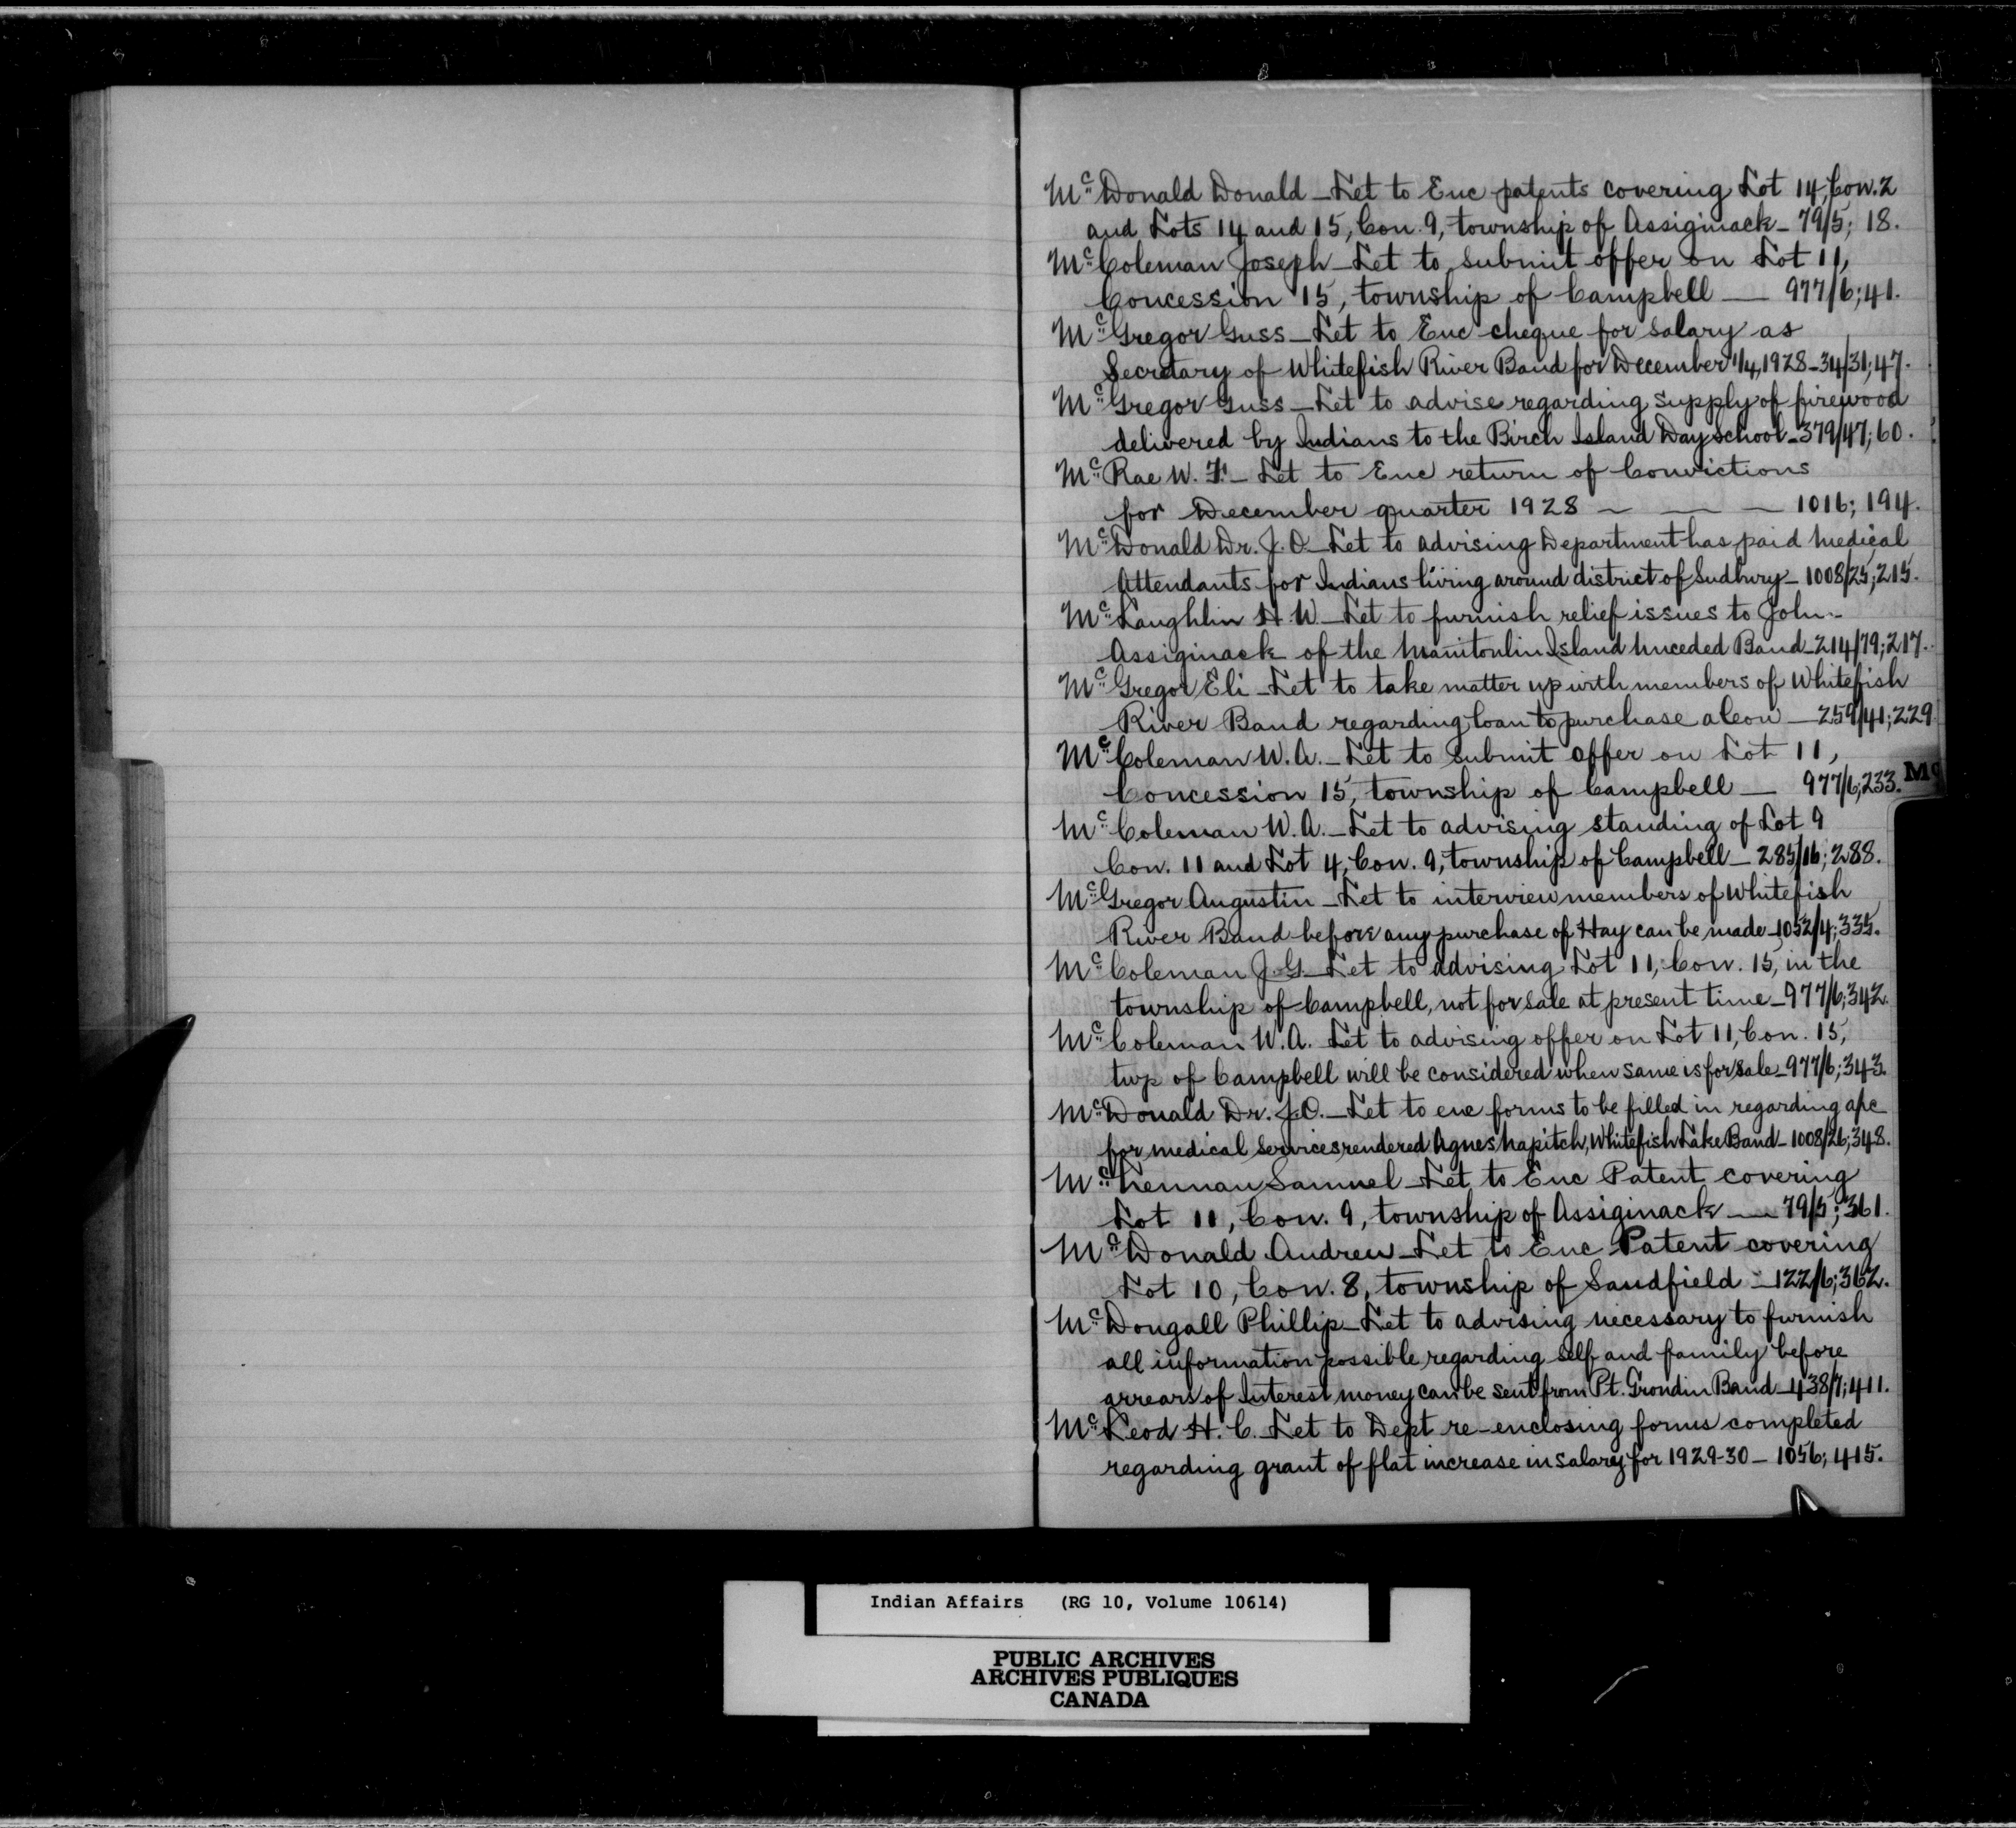 McDonald Donald - Let to Enc patents covering Lot 14, Con. 2
and Lots 14 and 15, Con. 9, township of Assiginack - 79/5; 18.
McColeman Joseph - Let to submit offer on Lot 11,
Concession 15, township of Campbell — 977/6; 41.
McGregor Guss - Let to Enc cheque for salary as
Secretary of Whitefish River Band for December 1/4, 1928 - 34/31; 47.
McGregor Guss - Let to advise regarding supply of firewood
delivered by Indians to the Birch Island Day School - 379/47; 60.
McRae W. F. - Let to Enc return of Convictions
for December quarter 1928 — — — 1016; 194.
McDonald Dr. J. O. - Let to advising Department has paid medical
Attendants for Indians living around district of Sudbury - 1008/25; 215.
McLaughlin H. W. - Let to furnish relief issues to John
Assiginack of the Manitoulin Island Unceded Band - 214/79; 217.
McGregor Eli - Let to take matter up with members of Whitefish
River Band regarding loan to purchase a Cow — 259/41; 229
McColeman W. A. - Let to submit offer on Lot 11,
Concession 15, township of Campbell — 977/6; 233.
Mc
McColeman W. A. - Let to advising standing of Lot 9
Con. 11 and Lot 4, Con. 9, township of Campbell - 285/16; 288.
McGregor Augustin - Let to interview members of Whitefish
River Band before any purchase of Hay can be made - 1052/4; 335.
McColeman J. G. - Let to advising Lot 11, Con. 15, in the
township of Campbell, not for sale at present time - 977/6; 342.
McColeman W. A. Let to advising offer on Lot 11, Con. 15,
twp of Campbell will be considered when same is for sale - 977/6; 343.
McDonald Dr. J. O. - Let to enc forms to be filled in regarding a/c
for medical services rendered Agnes Napitch, Whitefish Lake Band - 1008/26; 348.
Mc Samuel - Let to Enc Patent covering
Lot 11, Con. 9, township of Assiginack — 79/5; 361.
McDonald Andrew - Let to Enc Patent covering
Lot 10, Con. 8, township of Sandfield - 122/6; 362.
McDougall Phillip - Let to advising necessary to furnish
all information possible regarding self and family before
arrears of Interest money can be sent from Pt. Grondin Band - 438/7; 411.
McLeod H. C. Let to Dept re-enclosing forms completed
regarding grant of flat increase in salary for 1929-30 - 1056; 415.
Indian Affairs (RG 10, Volume 10614)
PUBLIC ARCHIVES
ARCHIVES PUBLIQUES
CANADA